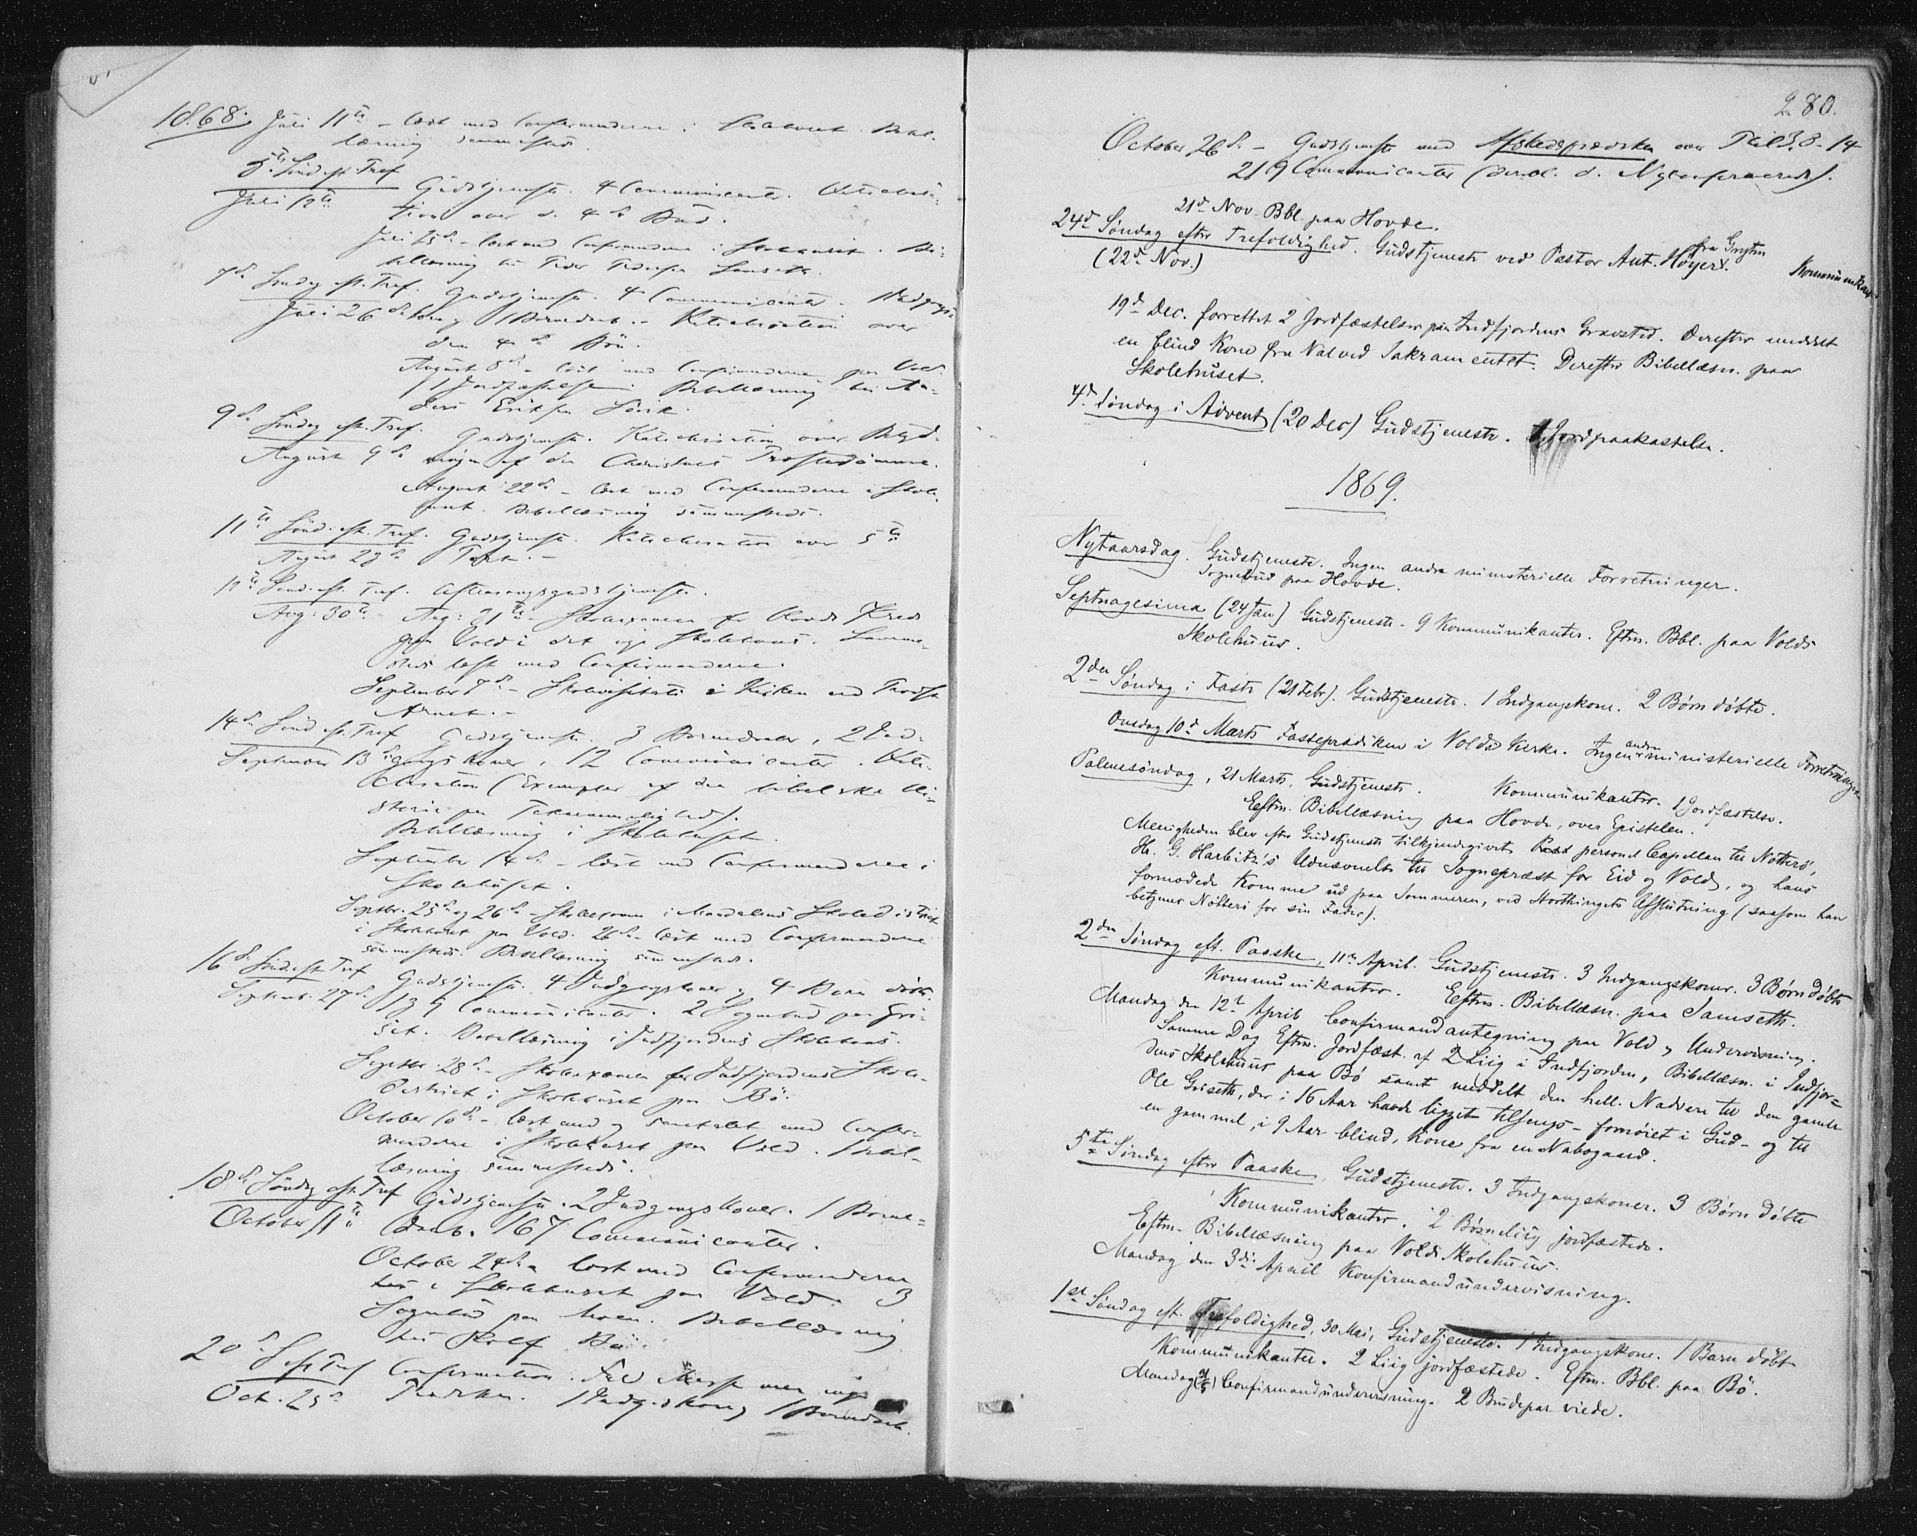 1868. Juli 11te – læst med Confirmanderne i Skolehuset. Bibel-
læsning sammesteds.
5te Sönd. eft. Tref. Gudstjeneste. 4 Communicanter. Catechisa-
Juli 12te tion over d. 4de Bud.
Juli 25de – læst med Confirmanderne i Skolehuset. Bi-
bellæsning hos Peder Pedersen Samseth.
7de Söndag eft. Tref. Gudstjeneste. 4 Communicanter. 1 Indgangs-
Juli 26de kone og 1 Barnedaab. – Katechisation over
den 4de Bön.
August 8de – læst med Confirmanderne paa Vold.
1 Jordfæstelse. Bibellæsning hos An-
ders Eriksen
9de Söndag eft. Tref. Gudstjeneste. Katechisation over Betyd-
August 9de ningen af den Christnes
August 22de – læst med Confirmanderne i Skole-
huset. Bibellæsning sammesteds.
11te Sönd. eft. Tref. Gudstjeneste. Katechisation over 5te
August 23de Part. –
12te Sönd. eft. Tref. Aftensangsgudstjeneste.
Aug: 30te Aug: 21de – Skoleexamen for Volds Kreds
paa Vold i det nye Skolehuus. Samme-
steds læst med Confirmanderne.
September 7de – Skolevisitats i Kirken ved Provst
14de Sönd. eft. Tref. Gudstjeneste. 3 Barnedaaber, 2 Ind-
September 13de gangskoner, 12 Communicanter. Kate-
chisation (Exempler af den bibelske Hi-
storie paa Taknemmelighed).
Bibellæsning i Skolehuset.
September 14de – læst med Confirmanderne i
Skolehuset.
Septbr. 25de og 26de – Skoleexamen i Mandalens Skoledistrict
i Skolehuset paa Vold. 26de læst med Confirmanderne
sammesteds. Bibellæsning sammesteds.
16de Sönd. eft. Tref. Gudstjeneste. 4 Indgangskoner og 4 Börn döbte.
Septemb. 27de 139 Communicanter. 2 Sognebud paa Gri-
set. Bibellæsning i Indfjordens Skolehuus.
Septbr. 28de – Skoleexamen for Indfjordens Skole-
District i Skolehuset paa Bö.
October 10de – læst med og samtalet med Confir-
manderne i Skolehuset paa Vold. Bibel-
læsning sammesteds.
18de Söndag eft. Tref. Gudstjeneste. 2 Indgangskoner. 1 Barne-
October 11te daab. 167 Communicanter.
October 24de – læst med Confirmanderne
i Skolehuset paa Vold. 3
Sognebud paa Bibellæsning
hos Bö.
20de S. eft. Tref. Confirmation.
Oct. 25de Prædiken. 1 Indg.skone og 1 Barnedaab.
280.
October 26de – Gudstjeneste med Afskedsprædiken over Phil. 3. 8–14
219 Communicanter (deribl. d. Nyconfirmerede).
21de Nov. Bbl paa Hovde.
24de Søndag efter Trefoldighed. Gudstjeneste ved Pastor Ant. Høyer fra Grytten
(22de Nov.) Kommunikant
19de Dec. forrettet 2 Jordfæstelser paa Indfjordens Gravsted. Derefter meddelt
en blind Kone fra Nalved Sakramentet. Derefter Bibellæsn. paa
Skolehuset.
4de Søndag i Advent (20 Dec) Gudstjeneste. 1 Jordpaakastelse.
1869.
Nytaarsdag. Gudstjeneste. Ingen andre ministerielle Forretninger.
Sognebud paa Hovde.
Septuagesima (24 Jan) Gudstjeneste. 9 Kommunikanter. Eftm. Bbl. paa Volds
Skolehuus.
2den Søndag i Faste (21 Febr). Gudstjeneste. 1 Indgangskone. 2 Børn døbte.
Onsdag 10de Marts Fasteprædiken i Volds Kirke. Ingen andre ministerielle Forretninger
Palmesøndag, 21 Marts, Gudstjeneste. Kommunikanter. 1 Jordfæstelse.
Eftm. Bibellæsning paa Hovde, over Epistelen.
Menigheden blev efter Gudstjeneste tilkjendegivet personel Capellan til Nötterö,
Hr. G. Harbitz's Udnævnelse til Sognepræst for Eid og Vold, og hans
formodede Komme ud paa Sommeren, ved Storthingets Afslutning (saasom han
betjener Nötterö for sin Fader).
2den Søndag eft. Paaske, 11te April. Gudstjeneste. 3 Indgangskoner. 3 Børn døbte
Kommunikanter. Eftm. Bibellæsn. paa Samseth.
Mandag den 12te April Confirmandantegning paa Vold og Undervisning.
Samme Dag Eftm. Jordfæst. af 2 Liig i Indfjorden, Bibellæsn. i Indfjor-
dens Skolehuus paa Bø samt meddelt den hell. Nadvere til den gamle
Ole Griseth, der i 16 Aar havde ligget tilsengs – fornøiet i Gud – og til
en gammel, i 9 Aar blind, Kone fra en Nabogaard.
5te Søndag efter Paaske, Gudstjeneste. 3 Indgangskoner. 3 Børn døbte
Kommunikanter. 2 Børneliig jordfæstede.
Eftm. Bibellæsning paa Volds Skolehuus.
Mandag den 3die April Konfirmandundervisning.
1ste Søndag eft. Trefoldighed, 30 Mai, Gudstjeneste. 1 Indgangskone. 1 Barn døbt
Kommunikanter. 2 Liig jordfæstede. Eftm. Bbl. paa Bø.
Mandag (31/5) Confirmandundervisning. 2 Brudepar viede.